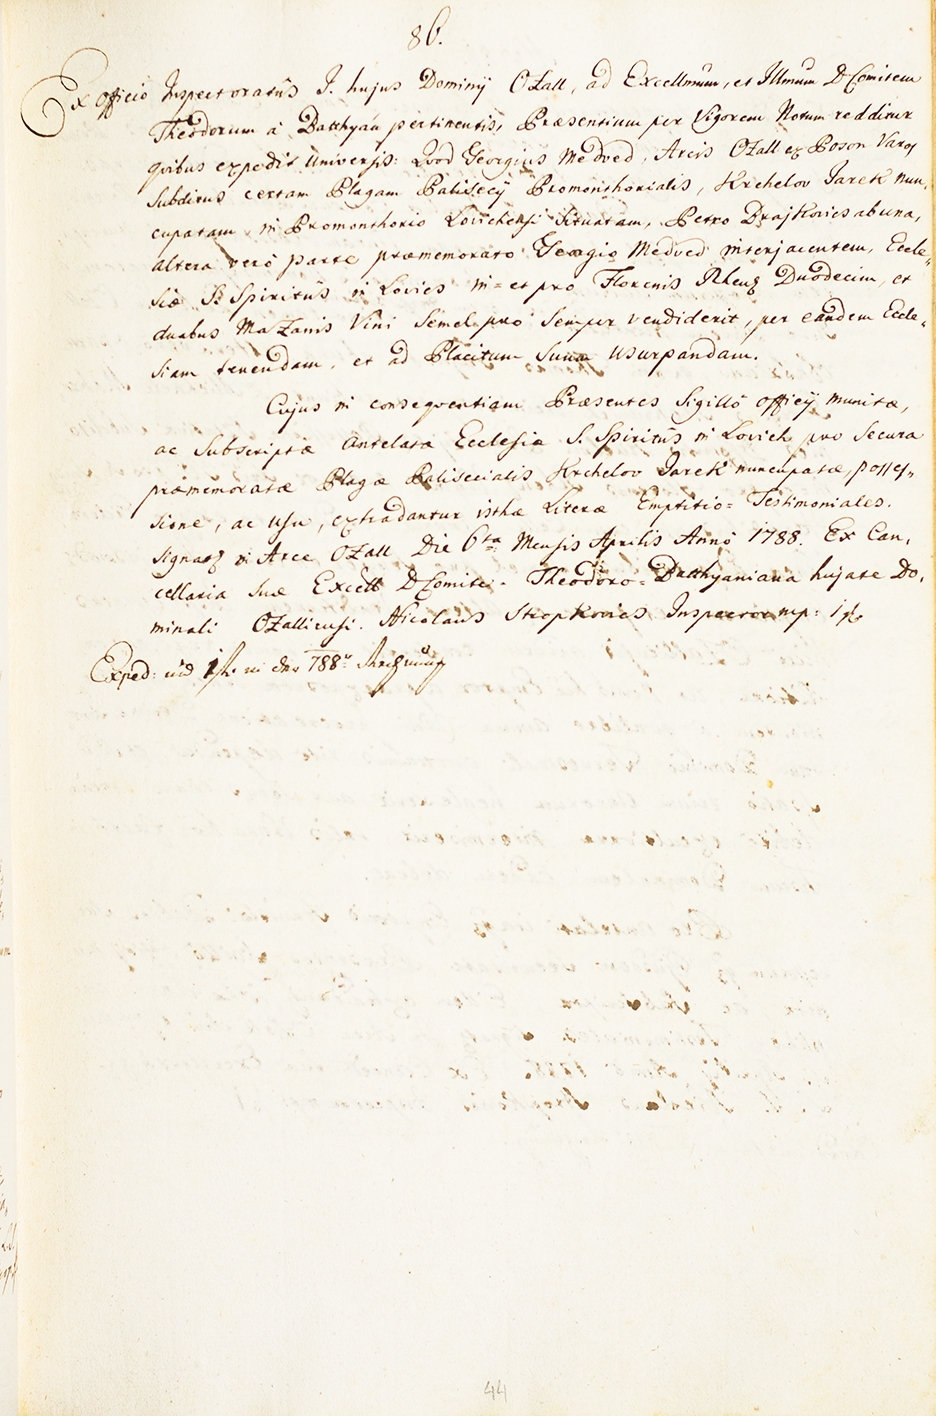 86.
Ex Officio Inspectoratûs I. hujus Dominy Ozall, ad Excellmum, et Illmum D Comitem
Theodorum à Batthyán pertinentis, Præsentium per Vigorem Notum redditur
quibus expedit Universis: Quod Georgius Medved, Arcis Ozall ex Poson Varos
Subditus certam Plagam Palisecy Promonthorialis, Krchelov Jarek nun,
cupatam in Promonthorio Lovichensi situatam, Petro Brajkovics ab una,
altera verò parte præmemorato Georgio Medved interjacentem, Eccle-
siæ S. Spiritûs in Lovics in= et pro Florenis Rhen. Duodecim, et
duabus Mazanis Vini Semel pro Semper vendiderit, per eandem Eccle-
siam tenendam, et ad Placitum Suum Usurpandam.
Cujus in consequentiam Præsentes Sigillô Officÿ munitæ,
ac Subscriptæ antelatæ Ecclesiæ S. Spiritûs in Lovich pro Secura
præmemoratæ Plagæ Palisecialis Krchelov Jarek nuncupatæ, posses-
sione, ac usu, extradantur isthæ Literæ Emptitio= Testimoniales.
Signat. in Arce Ozall Die 6ta Mensis Aprilis Annô 1788. Ex Can,
cellaria Suæ Excell D Comite. Theodoro=Batthyaniana hujate Do,
minali Ozalliensi. Nicolaus Stepkovics Inspector mp:
Exped: 788
44